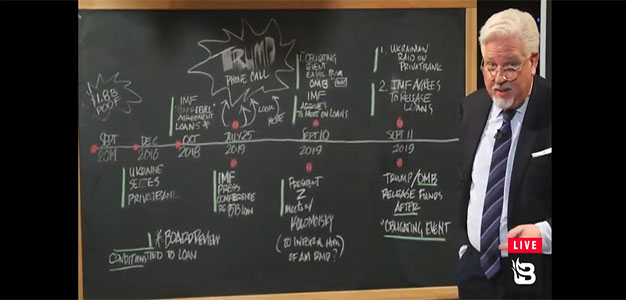 TRUMP
PHONE CALL
$1.8B
POOF
IMF
AGREEMENT
LOANS *
LOOK
HERE
1. OBLIGATING
EVENT
EMAIL FROM
OMB
IMF
AGREES
TO MEET ON LOANS
1. UKRAINIAN
RAID ON
PRIVATBANK
2. IMF AGREES
TO RELEASE
LOANS
SEPT
2014
DEC
2016
OCT
2018
JULY 25
2019
SEPT 10
2019
SEPT 11
2019
UKRAINE
SEIZES
PRIVATBANK
IMF
PRESS
CONFERENCE
LOAN
PRESIDENT
Z
MEETS W/
KOLOMOISKY
OF AM RAID?
TRUMP/OMB
RELEASE FUNDS
AFTER
"OBLIGATING EVENT"
* BOARD REVIEW
CONDITIONS TIED TO LOAN
LIVE
B